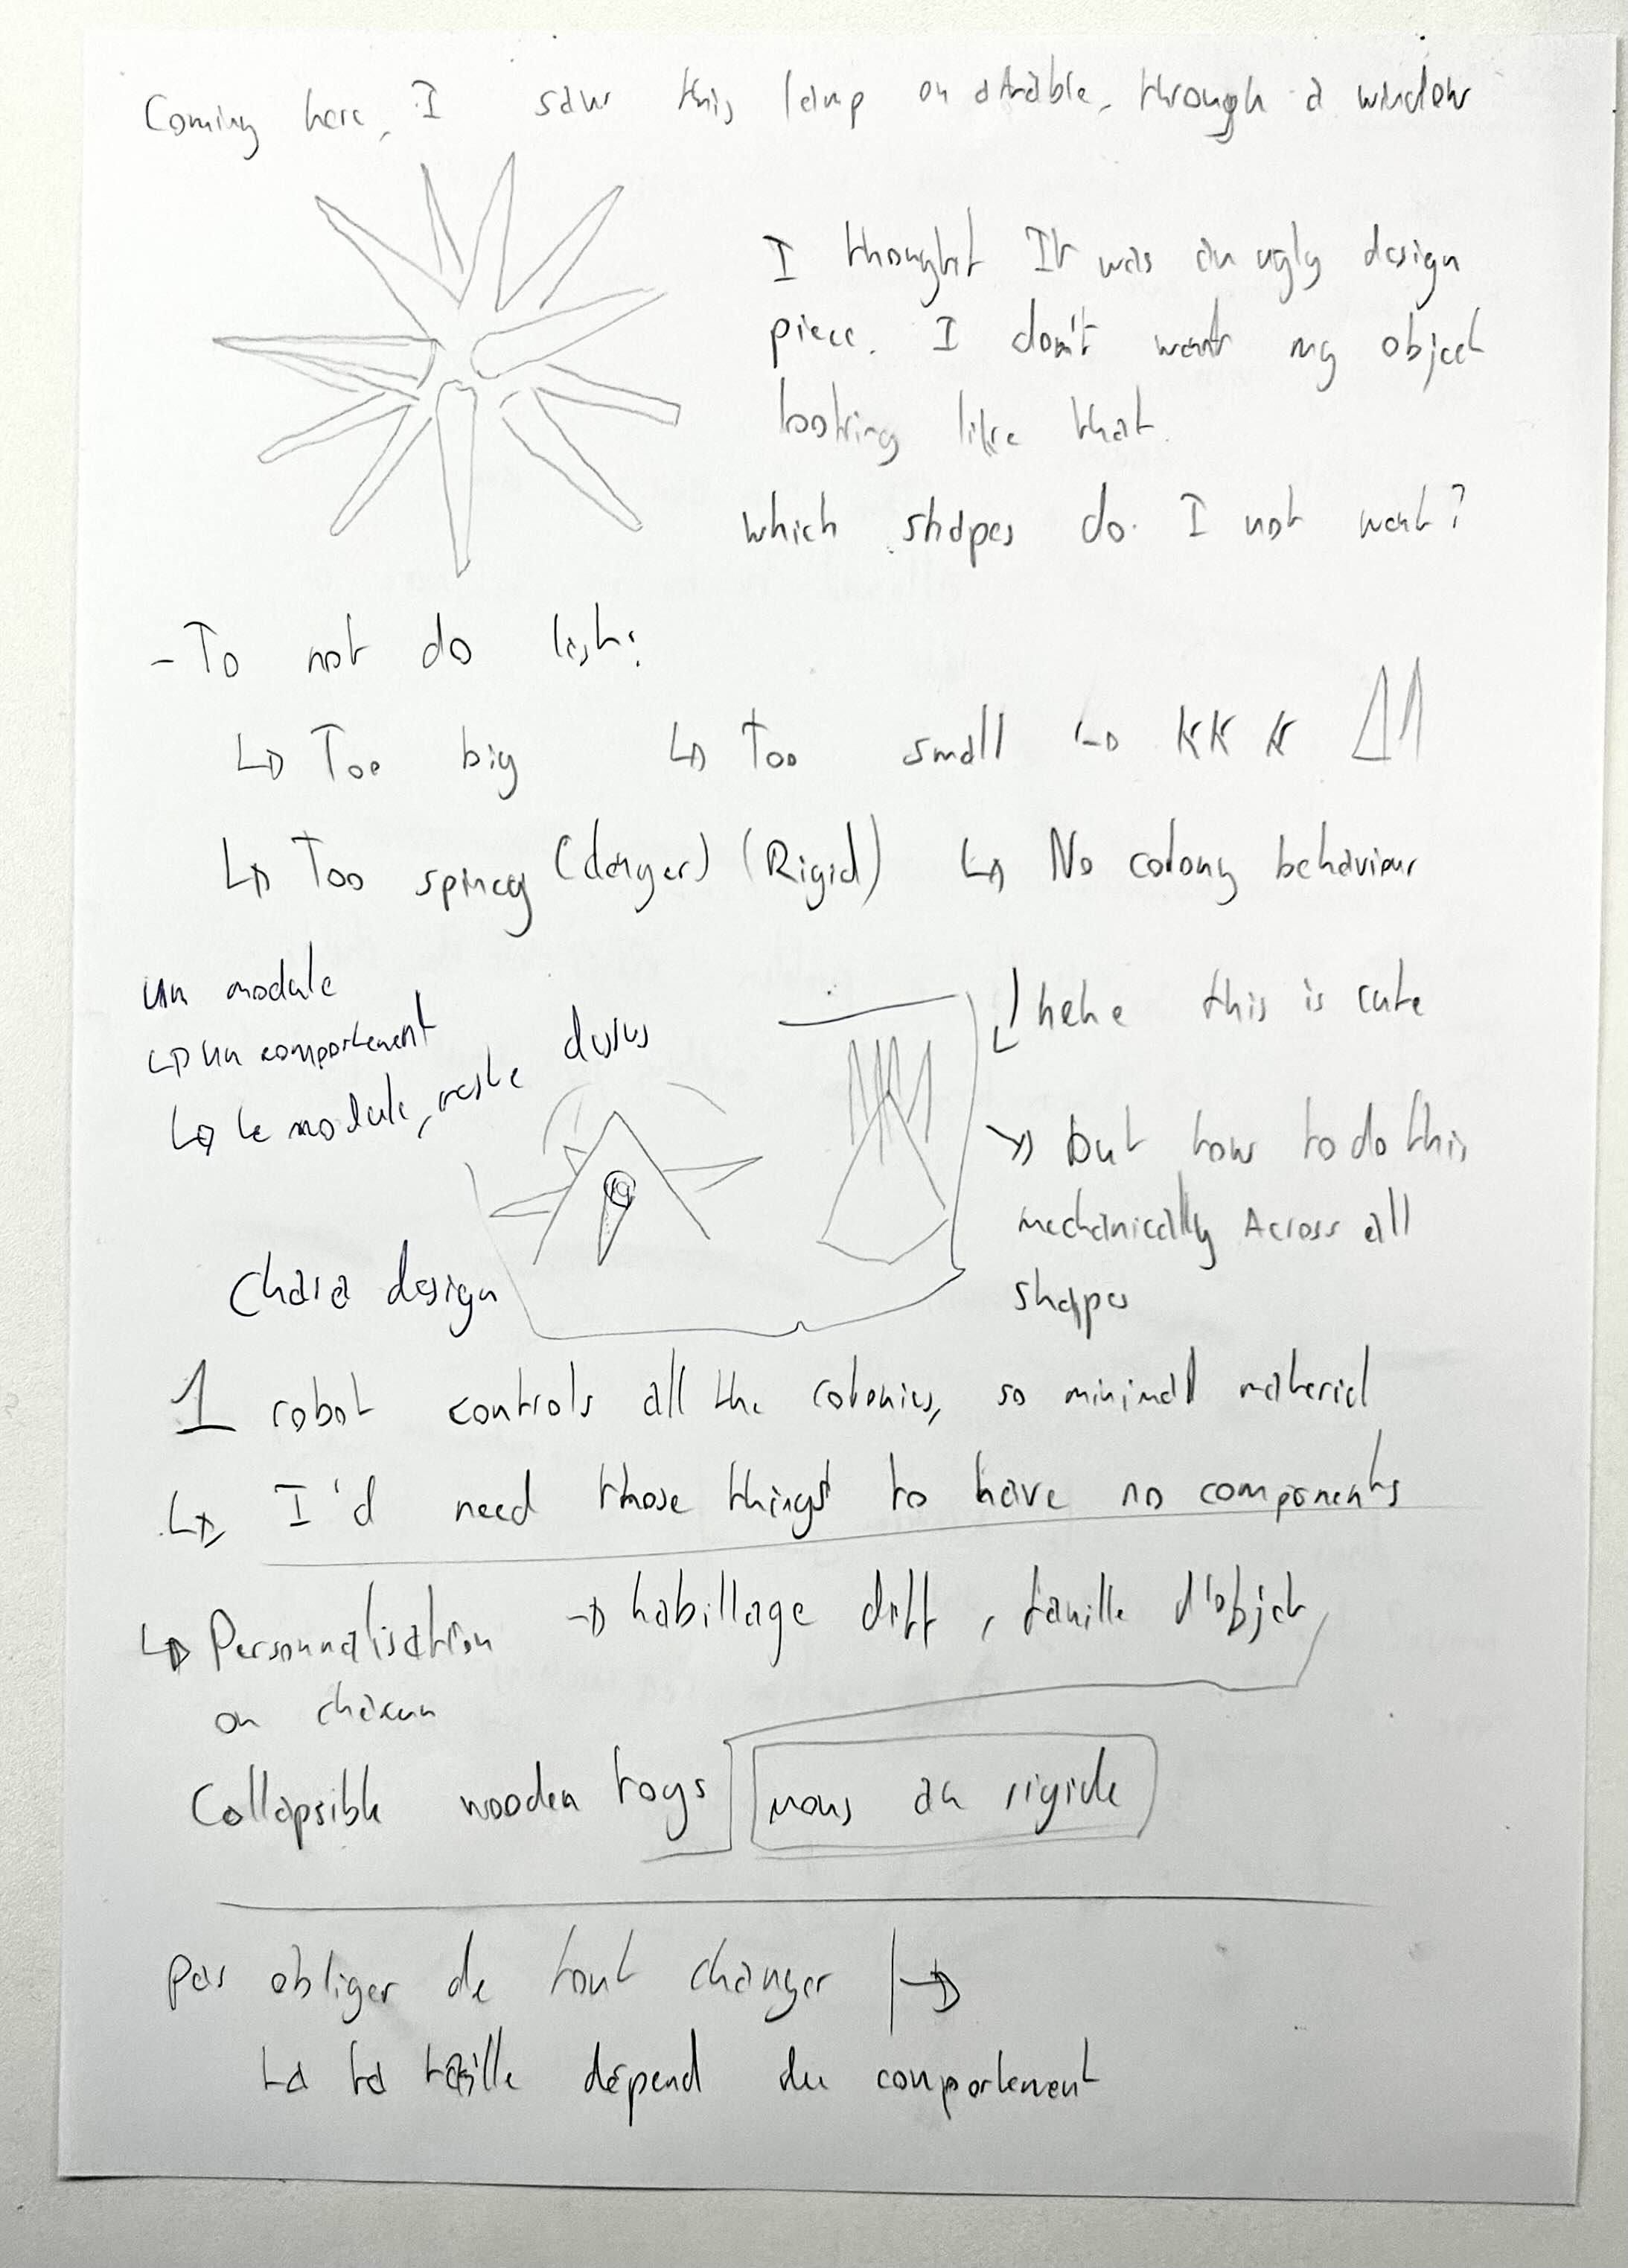 Coming here, I saw this lamp on a table, through a window
I thought It was an ugly design
piece. I don't want my object
looking like that.
which shapes do I not want?
- To not do list:
↳ Too big ↳ Too small ↳ KKK
↳ Too spiney (danger) (Rigid) ↳ No colony behaviour
un module
↳ un comportement
↳ le module, reste dessus
hehe this is cute
→ but how to do this
mechanically Across all
shapes
Chara design
1 robot controls all the colonies, so minimal material
↳ I'd need those things to have no components
↳ Personnalisation → habillage diff, famille d'objet
on chacun
Collapsible wooden toys
mous au rigide
pas obliger de tout changer →
↳ la taille dépend du comportement